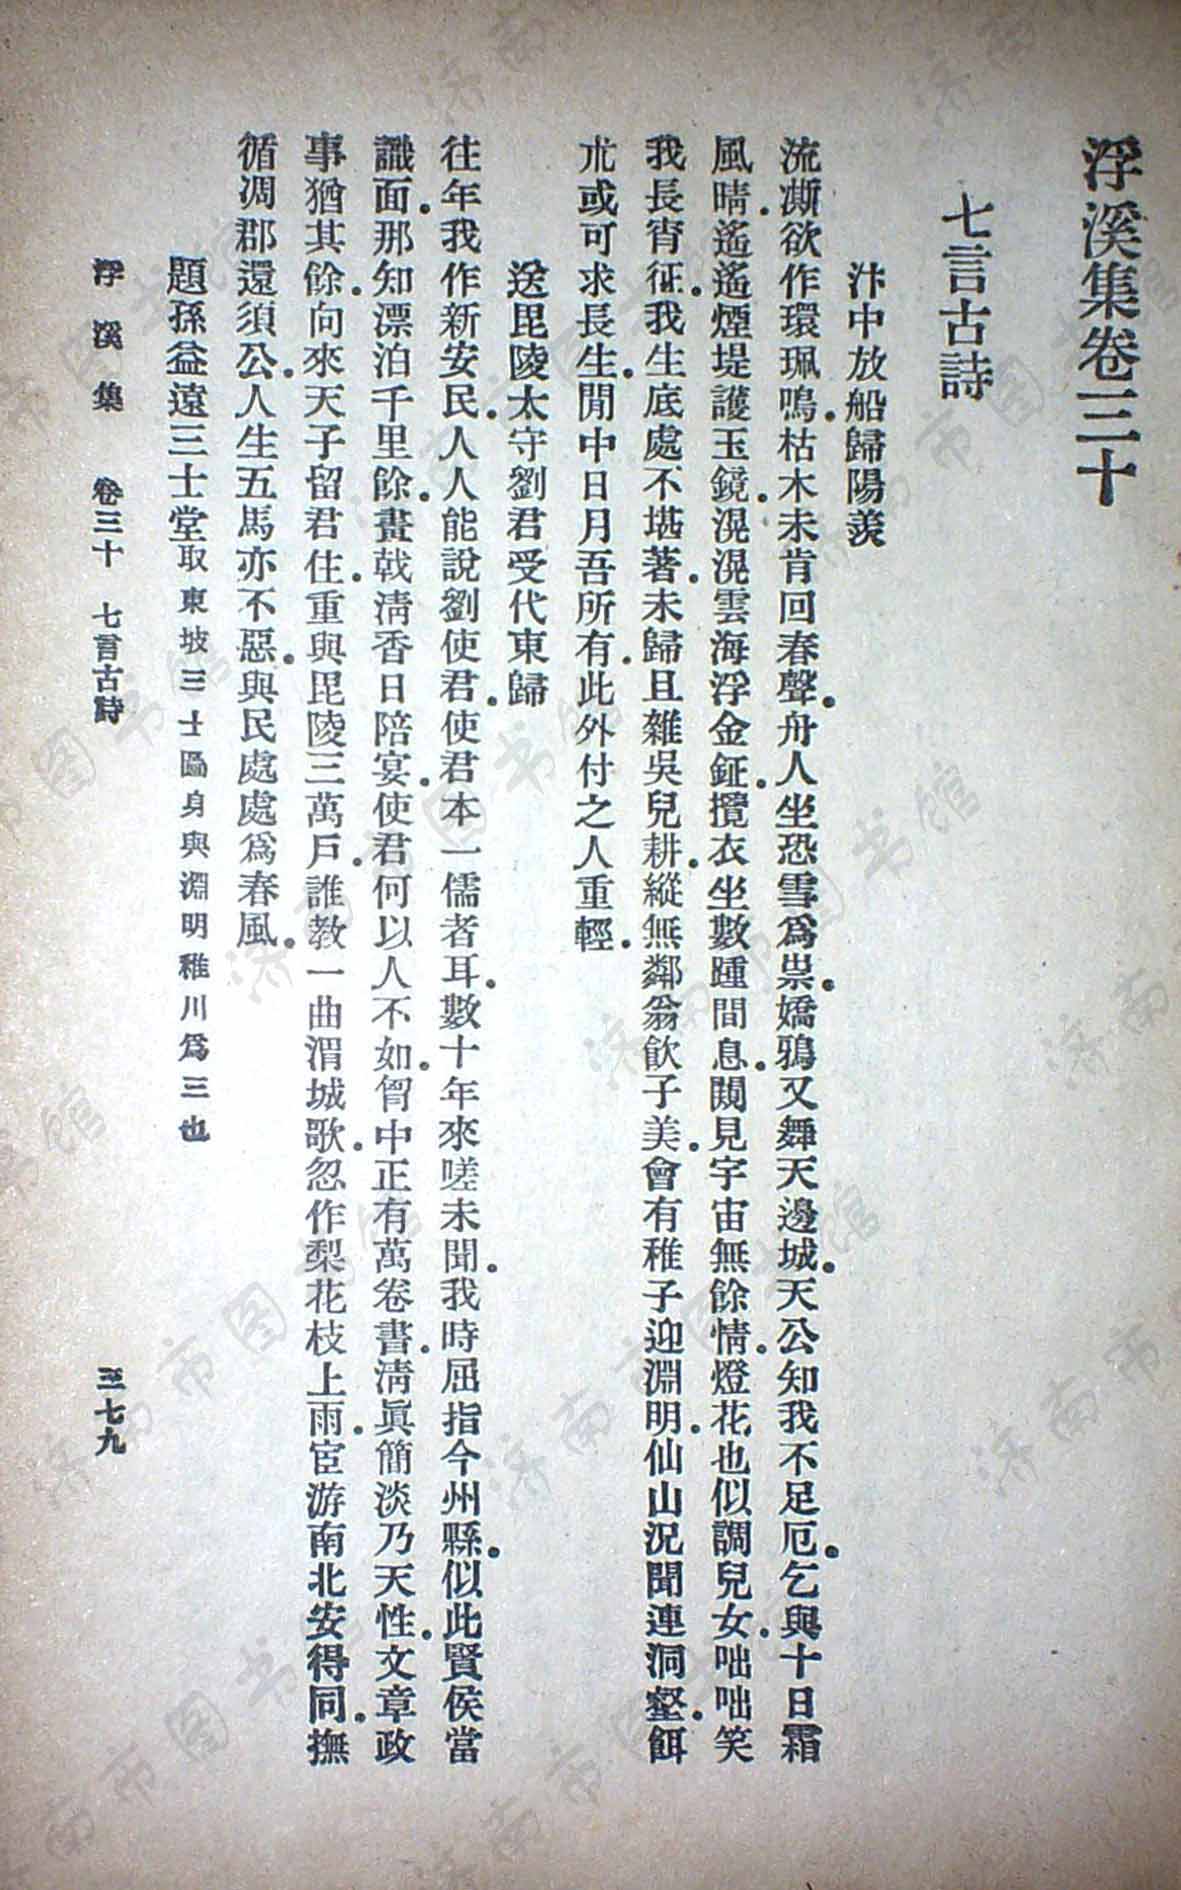 浮溪集卷三十
七言古詩
汴中放船歸陽羨
流澌欲作環珮鳴。枯木未肯回春聲。舟人坐恐雪爲祟。嬌鴉又舞天邊城。天公知我不足厄。乞與十日霜
風晴。遙遙煙堤護玉鏡。滉滉雲海浮金鉦。攬衣坐數踵間息。闚見宇宙無餘情。燈花也似調兒女。咄咄笑
我長宵征。我生底處不堪著。未歸且雜吳兒耕。縱無鄰翁飲子美。會有稚子迎淵明。仙山況聞連洞壑。餌
朮或可求長生。閒中日月吾所有。此外付之人重輕。
送毘陵太守劉君受代東歸
往年我作新安民。人人能說劉使君。使君本一儒者耳。數十年來嗟未聞。我時屈指今州縣。似此賢侯當
識面。那知漂泊千里餘。畫戟清香日陪宴。使君何以人不如。胷中正有萬卷書。清眞簡淡乃天性。文章政
事猶其餘。向來天子留君住。重與毘陵三萬戶。誰教一曲渭城歌。忽作梨花枝上雨。宦游南北安得同。撫
循凋郡還須公。人生五馬亦不惡。與民處處爲春風。
題孫益遠三士堂取東坡三士圖身與淵明稚川爲三也
浮溪集 卷三十 七言古詩 三七九